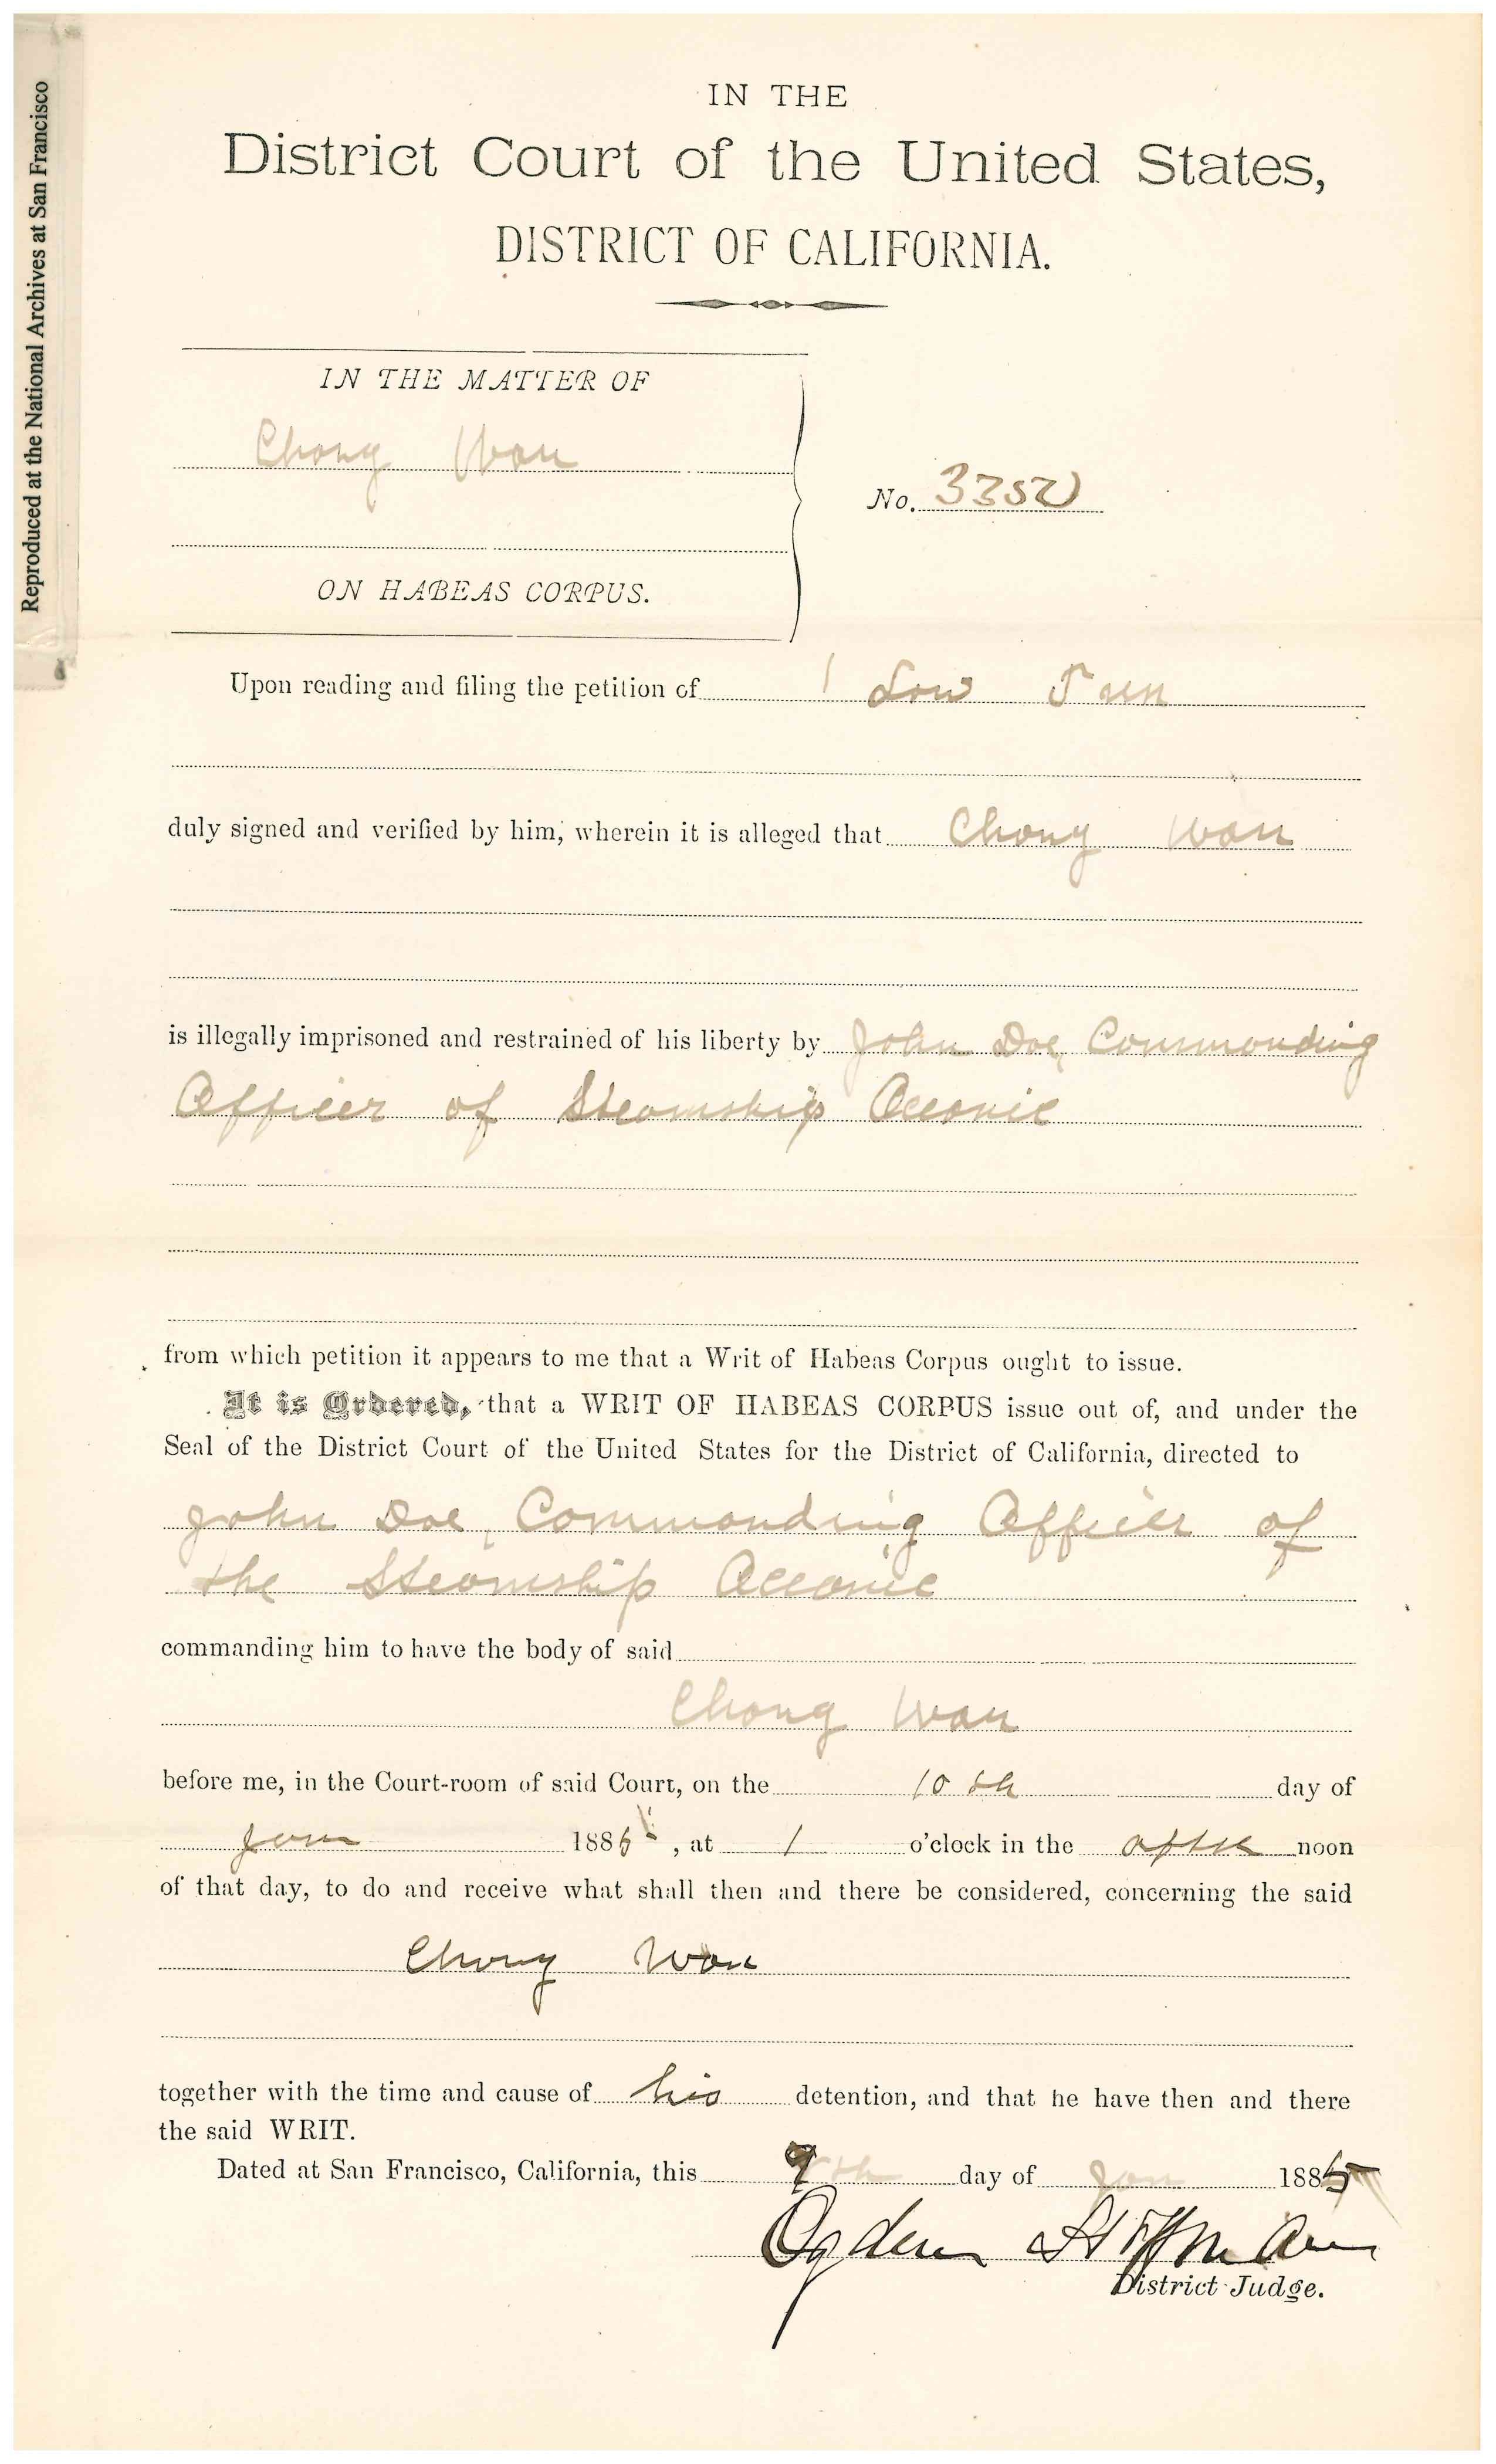 Reproduced at the National Archives at San Francisco
IN THE
District Court of the United States,
DISTRICT OF CALIFORNIA.
IN THE MATTER OF
Chong Wan
No. 3352
ON HABEAS CORPUS.
Upon reading and filing the petition of Low
duly signed and verified by him, wherein it is alleged that Chong Wan
is illegally imprisoned and restrained of his liberty by John Doe, Commanding
Officer of Steamship Oceanic
from which petition it appears to me that a Writ of Habeas Corpus ought to issue.
It is Ordered, that a WRIT OF HABEAS CORPUS issue out of, and under the
Seal of the District Court of the United States for the District of California, directed to
John Doe, Commanding Officer of
the Steamship Oceanic
commanding him to have the body of said
Chong Wan
before me, in the Court-room of said Court, on the 10th day of
Jan 1885, at 1 o'clock in the after noon
of that day, to do and receive what shall then and there be considered, concerning the said
Chong Wan
together with the time and cause of his detention, and that he have then and there
the said WRIT.
Dated at San Francisco, California, this 9th day of Jan 1885
Ogden Hoffman
District Judge.